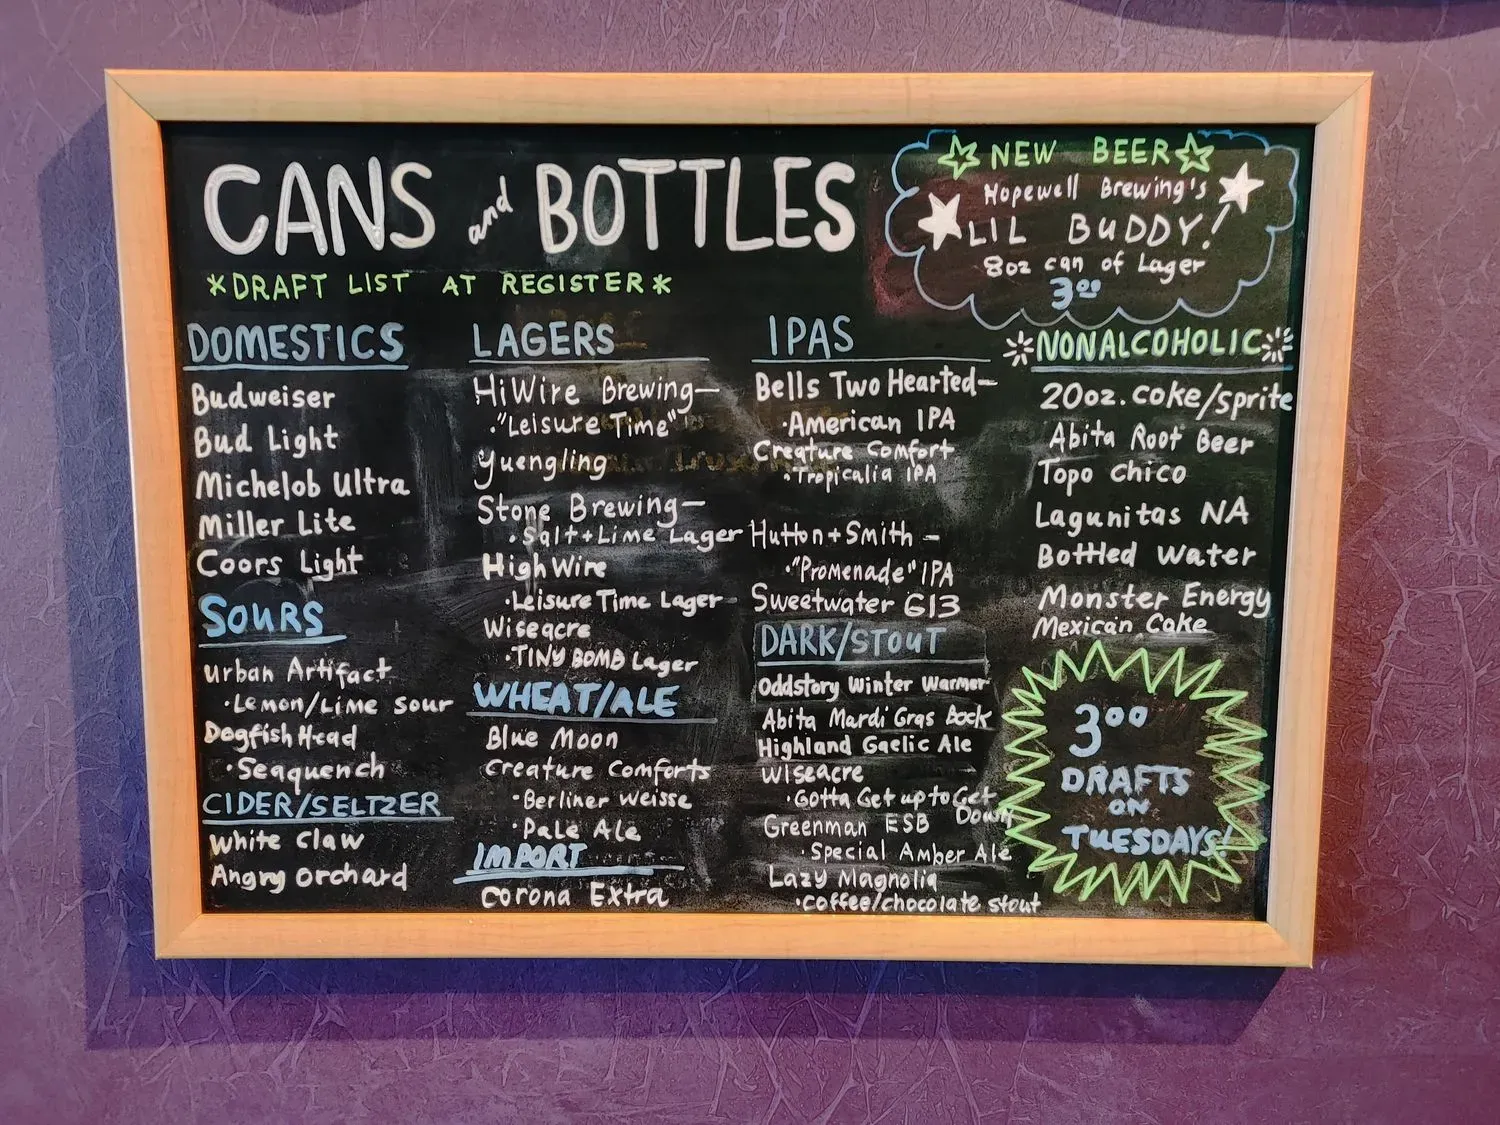 CANS and BOTTLES
*DRAFT LIST AT REGISTER*
NEW BEER
Hopewell Brewing's
LIL BUDDY!
8oz can of Lager
3⁰⁰
DOMESTICS
Budweiser
Bud Light
Michelob Ultra
Miller Lite
Coors Light
SOURS
Urban Artifact
·Lemon/Lime Sour
Dogfish Head
·Seaquench
CIDER/SELTZER
White Claw
Angry Orchard
LAGERS
HiWire Brewing—
·"Leisure Time"
Yuengling
Stone Brewing—
·Salt+Lime Lager
High Wire
·Leisure Time Lager
Wiseacre
·TINY BOMB Lager
WHEAT/ALE
Blue Moon
Creature Comforts
·Berliner Weisse
·Pale Ale
IMPORT
Corona Extra
IPAS
Bells Two Hearted—
·American IPA
Creature Comfort
·Tropicalia IPA
Hutton+Smith —
·"Promenade" IPA
Sweetwater G13
DARK/STOUT
Oddstory Winter Warmer
Abita Mardi Gras Bock
Highland Gaelic Ale
Wiseacre
·Gotta Get up to Get
Down
Greenman ESB
·Special Amber Ale
Lazy Magnolia
·Coffee/chocolate stout
NONALCOHOLIC
20oz. Coke/Sprite
Abita Root Beer
Topo Chico
Lagunitas NA
Bottled Water
Monster Energy
Mexican Coke
3⁰⁰
DRAFTS
ON
TUESDAYS!